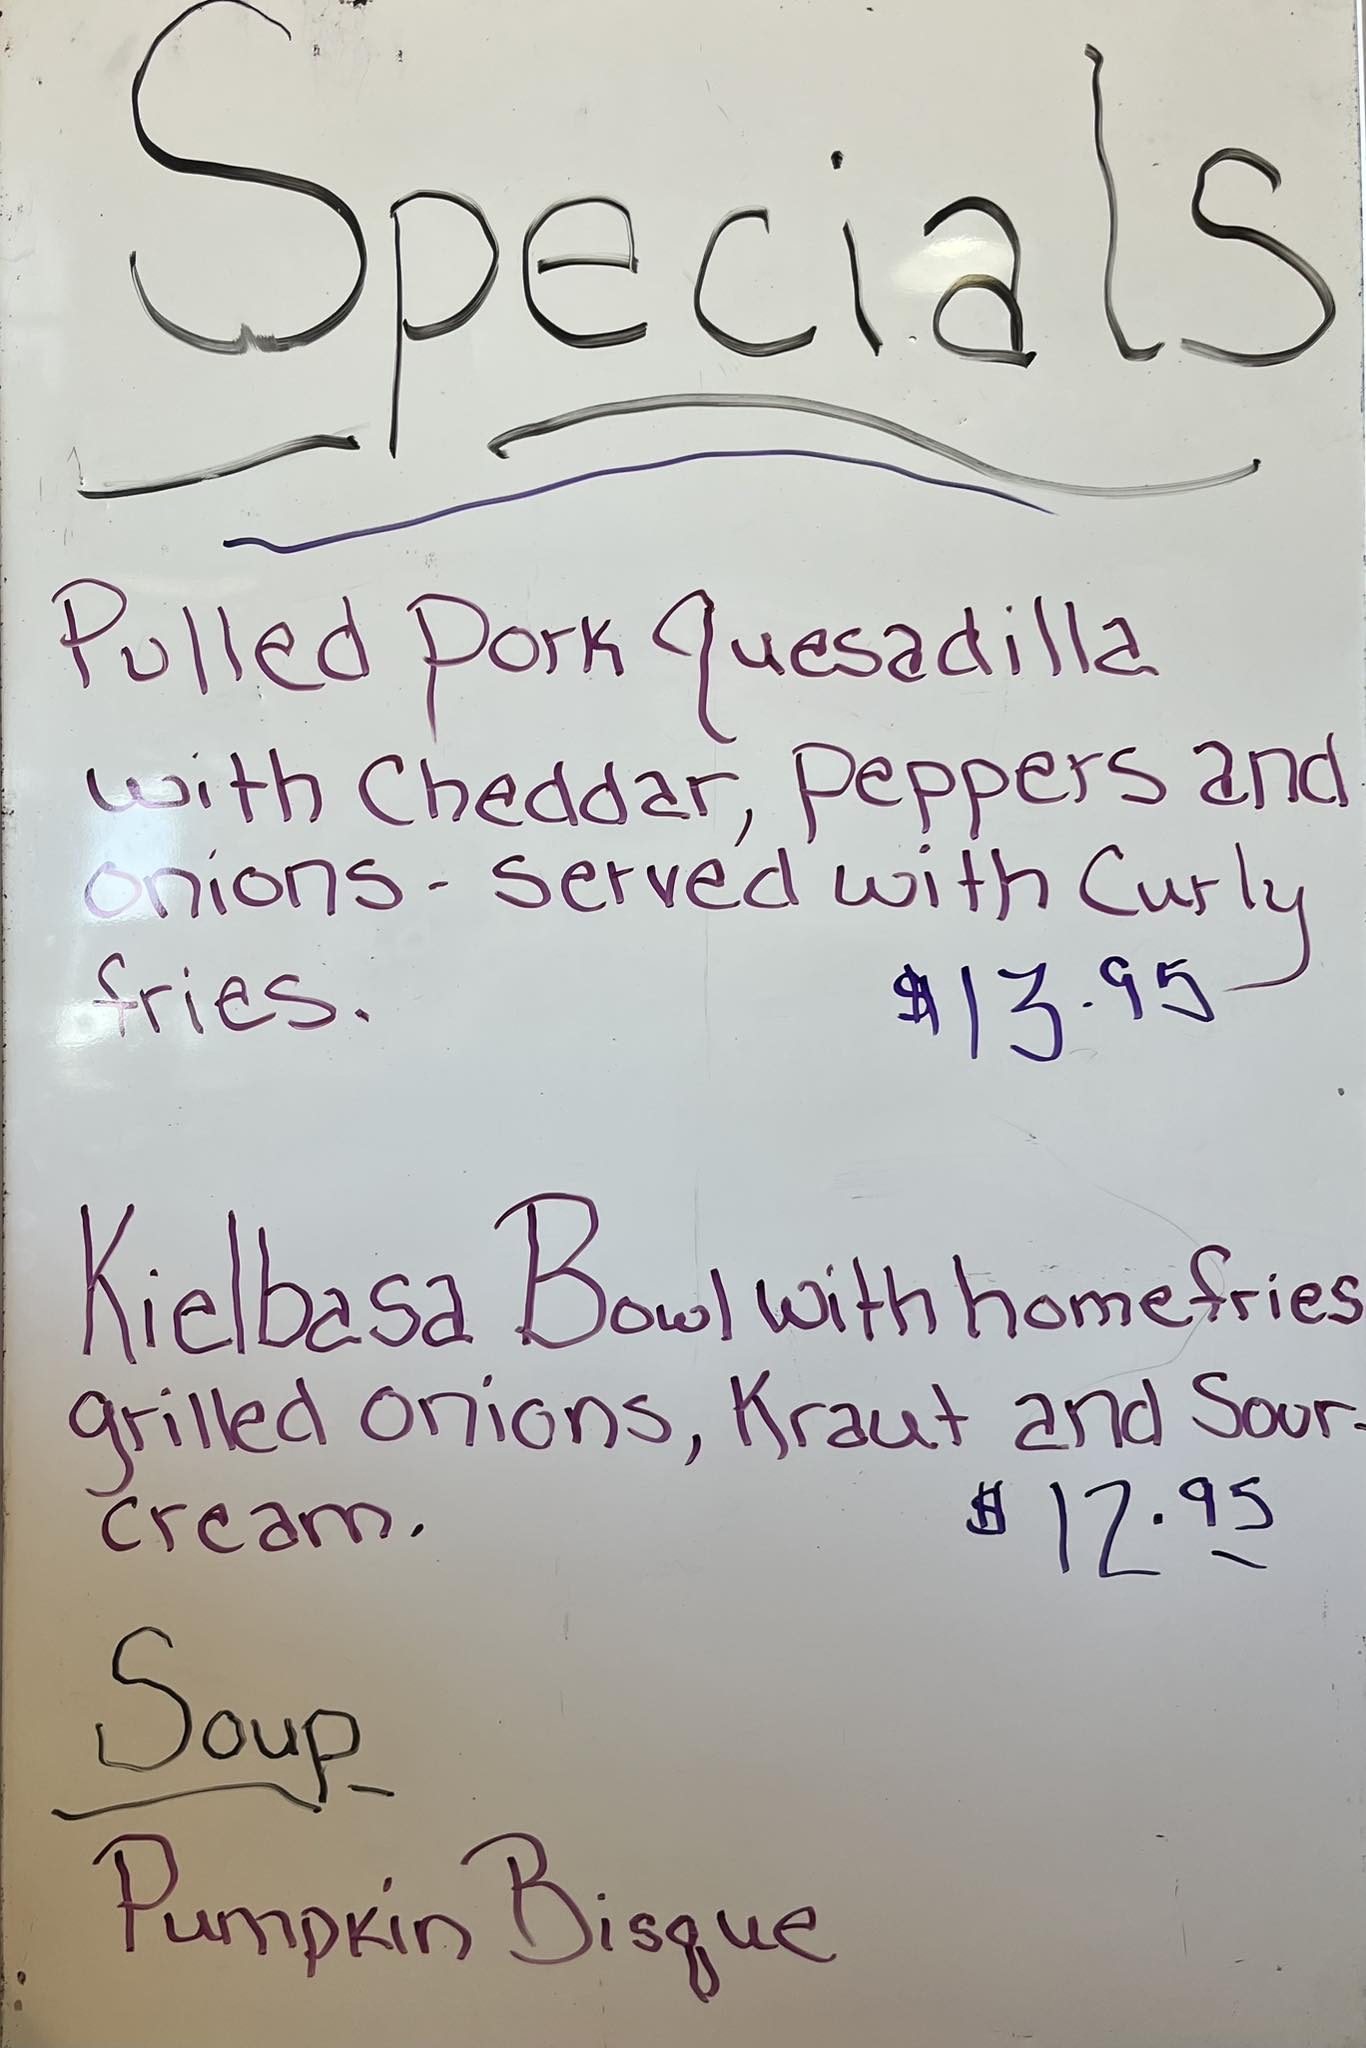 Specials
Pulled Pork Quesadilla
with Cheddar, Peppers and
onions - served with Curly
fries. $13.95
Kielbasa Bowl with homefries
grilled onions, Kraut and Sour-
cream. $12.95
Soup
Pumpkin Bisque